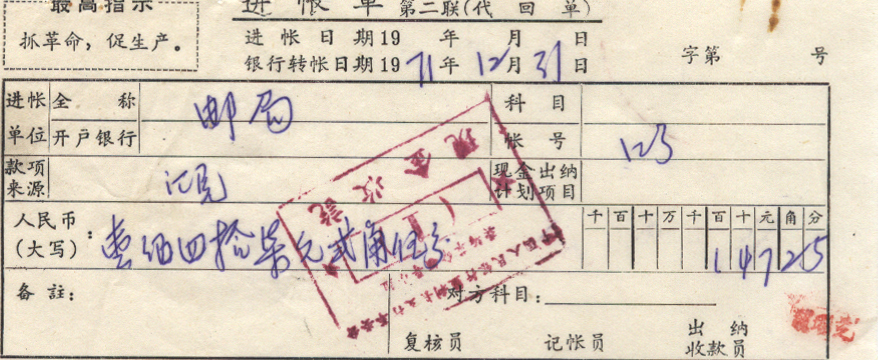 最高指示
抓革命，促生产。
进帐单 第二联(代回单)
进帐日期19 年 月 日
银行转帐日期1971年12月31日
字第 号
进帐单位 全称 邮局 科目
开户银行 帐号 123
款项来源 汇兑 现金出纳计划项目
人民币(大写)：壹佰四拾柒元贰角伍分 千百十万千百十元角分 14725
备注： 对方科目：
复核员 记帐员 出纳收款员
现金收讫